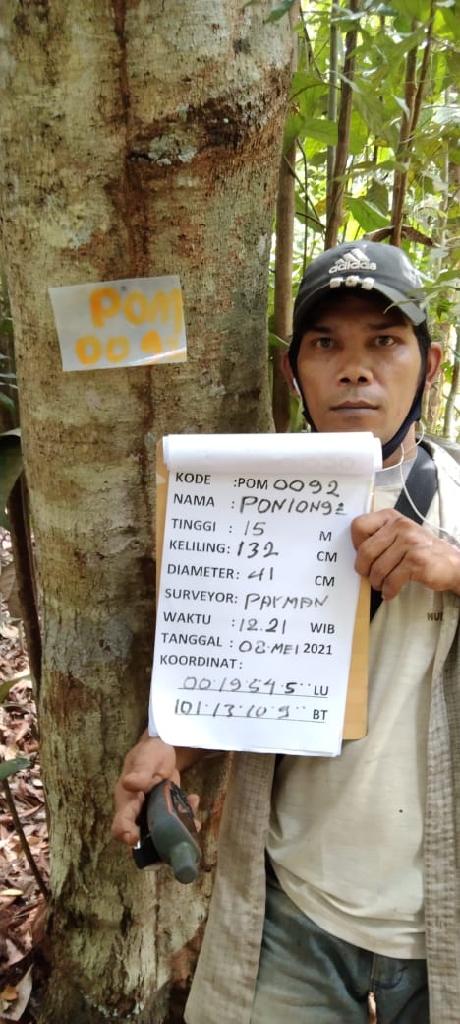 adidas
POM
009
KODE :POM 0092
NAMA : PONIONGE
TINGGI : 15 M
KELILING: 132 CM
DIAMETER: 41 CM
SURVEYOR: PAYMAN
WAKTU : 12.21 WIB
TANGGAL : 08 MEI 2021
KOORDINAT:
00°19'54.5'' LU
101°13'10.9'' BT